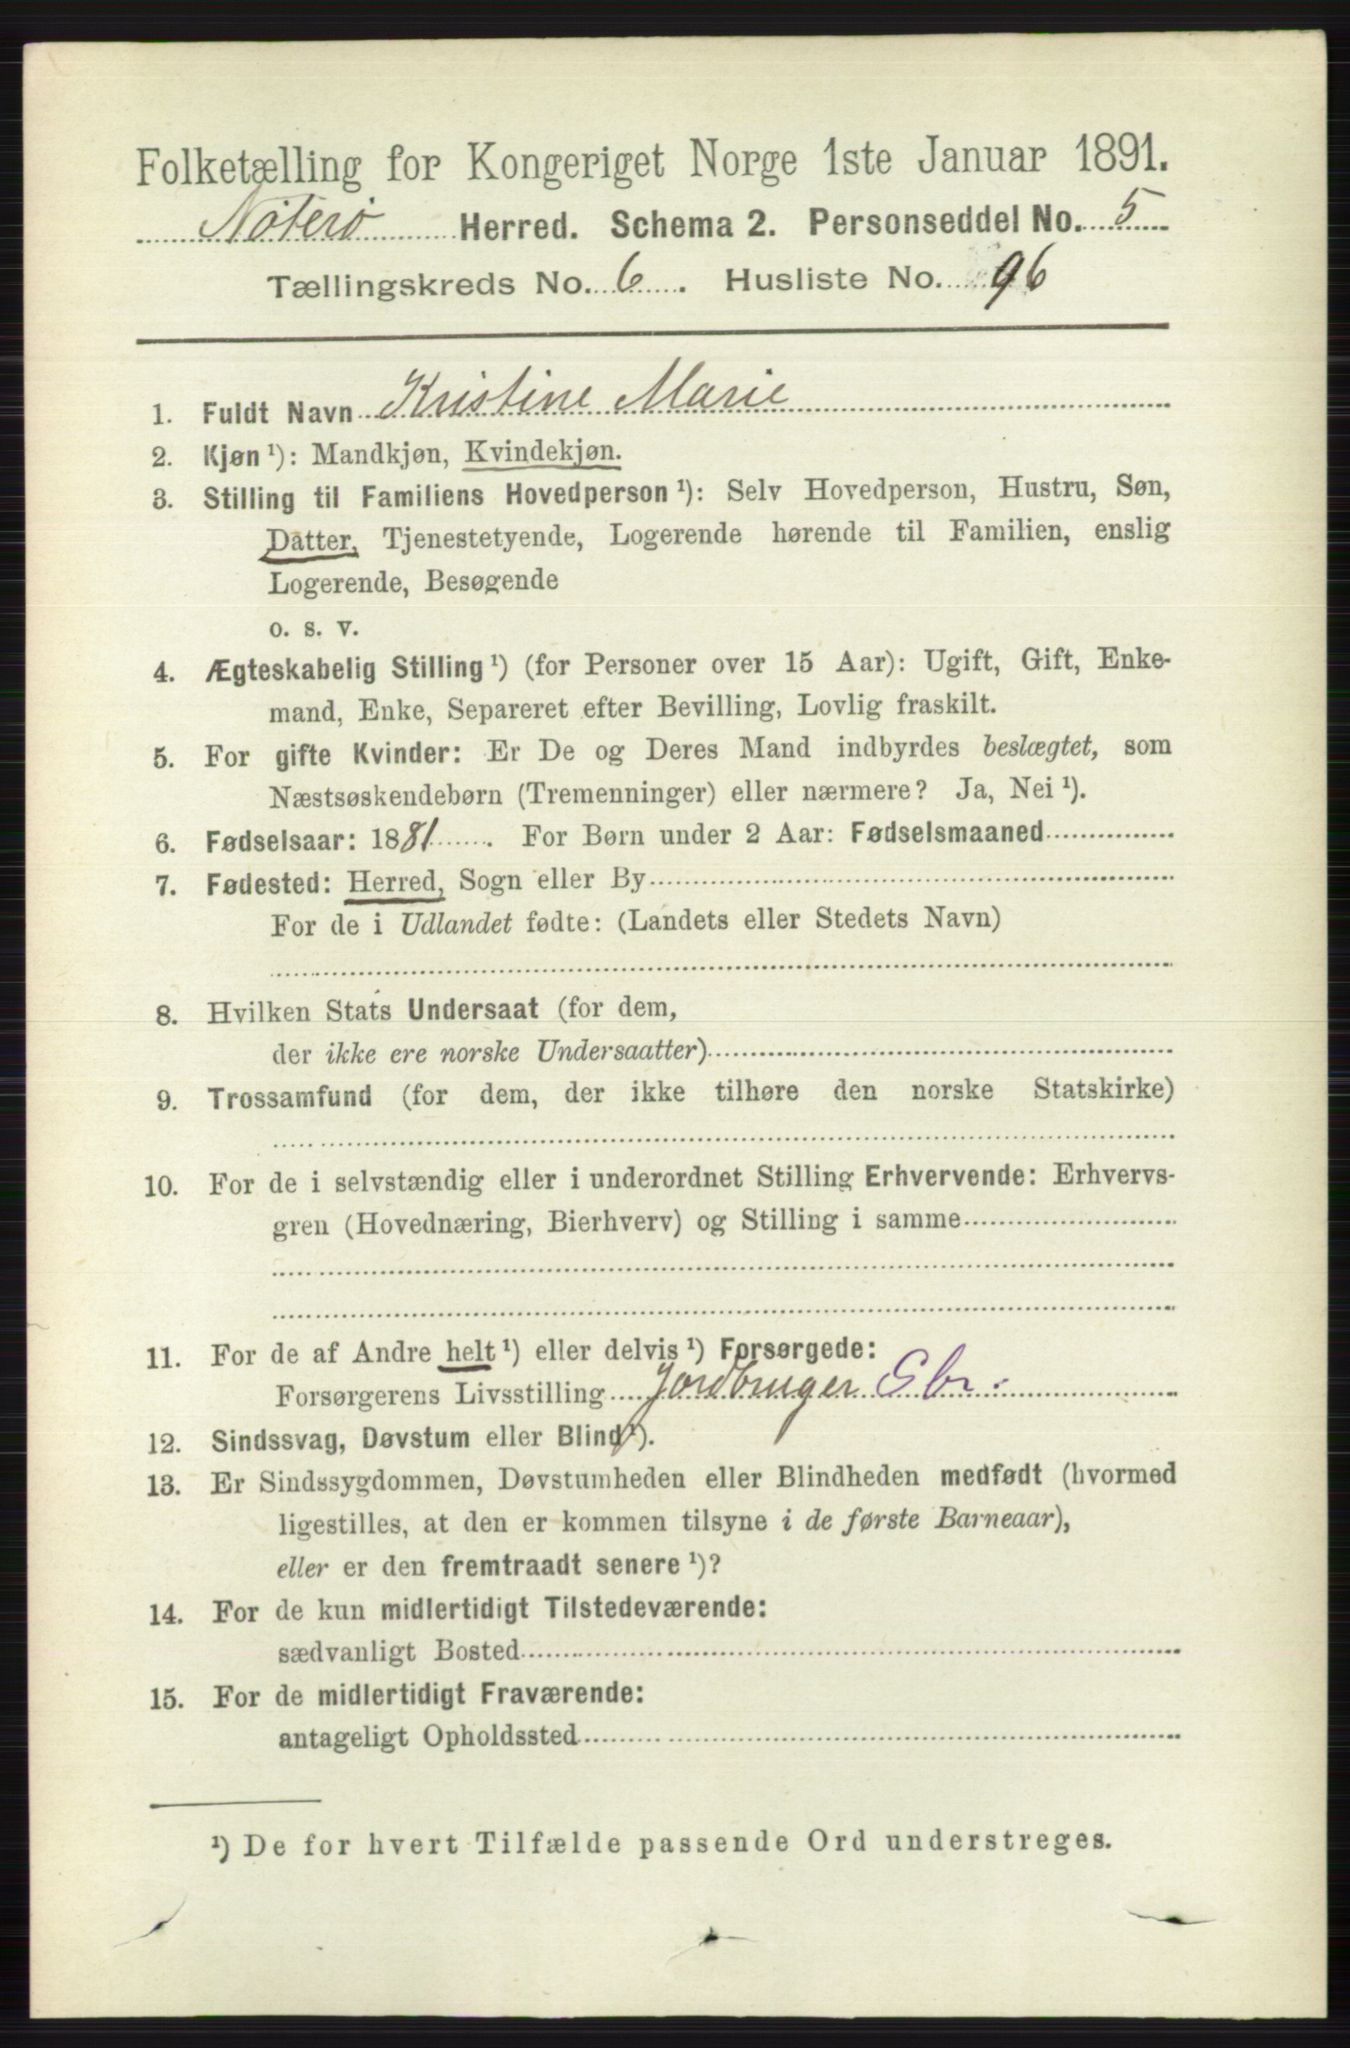 Folketælling for Kongeriget Norge 1ste Januar 1891.
Nøterø Herred. Schema 2. Personseddel No. 5
Tællingskreds No. 6. Husliste No. 96
1. Fuldt Navn Kristine Marie
2. Kjøn ¹): Mandkjøn, Kvindekjøn.
3. Stilling til Familiens Hovedperson ¹): Selv Hovedperson, Hustru, Søn,
Datter, Tjenestetyende, Logerende hørende til Familien, enslig
Logerende, Besøgende
o. s. v.
4. Ægteskabelig Stilling ¹) (for Personer over 15 Aar): Ugift, Gift, Enke-
mand, Enke, Separeret efter Bevilling, Lovlig fraskilt.
5. For gifte Kvinder: Er De og Deres Mand indbyrdes beslægtet, som
Næstsøskendebørn (Tremenninger) eller nærmere? Ja, Nei ¹).
6. Fødselsaar: 1881. For Børn under 2 Aar: Fødselsmaaned
7. Fødested: Herred, Sogn eller By
For de i Udlandet fødte: (Landets eller Stedets Navn)
8. Hvilken Stats Undersaat (for dem,
der ikke ere norske Undersaatter)
9. Trossamfund (for dem, der ikke tilhøre den norske Statskirke)
10. For de i selvstændig eller i underordnet Stilling Erhvervende: Erhvervs-
gren (Hovednæring, Bierhverv) og Stilling i samme
11. For de af Andre helt ¹) eller delvis ¹) Forsørgede:
Forsørgerens Livsstilling Jordbruger Gbr.
12. Sindssvag, Døvstum eller Blind ¹).
13. Er Sindssygdommen, Døvstumheden eller Blindheden medfødt (hvormed
ligestilles, at den er kommen tilsyne i de første Barneaar),
eller er den fremtraadt senere ¹)?
14. For de kun midlertidigt Tilstedeværende:
sædvanligt Bosted
15. For de midlertidigt Fraværende:
antageligt Opholdssted
¹) De for hvert Tilfælde passende Ord understreges.